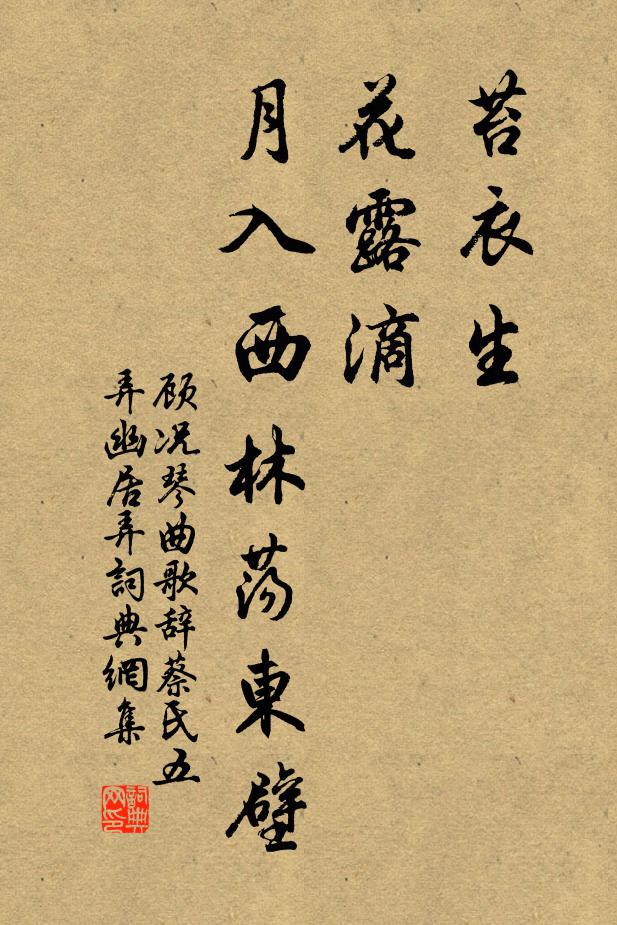 苔衣生
花露滴
月入西林荡東壁
顾况琴曲歌辞蔡氏五
弄幽居弄詞典網集
詞典
网印